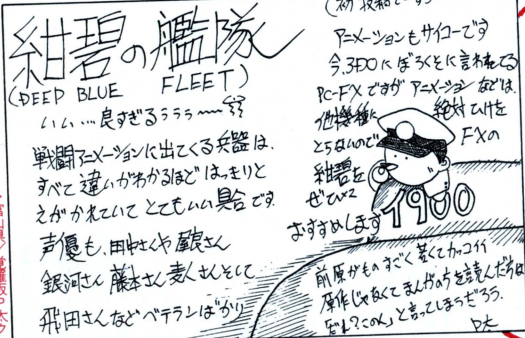 紺碧の艦隊
(DEEP BLUE FLEET)
いい…良すぎるぅぅぅ〜
戦闘アニメーションに出てくる兵器は、
すべて違いがわかるほどはっきりと
えがかれていてとてもいい具合です。
声優も、田中さんや屋良さん
銀河さん藤本さん麦人さんそして
飛田さんなどベテランばかり
(初投稿です)
アニメーションもサイコーです
今、3DOにぼろくそに言われてる
PC-FXですがアニメーションなどは、
他機種に絶対ひけを
とらないのでFXの
紺碧を
ぜひ
おすすめします
1900
前原がものすごく若くてカッコイイ
原作じゃなくてまんがの方を読んだ方は
「だれ?この人」と言ってしまうだろう。
富山県/